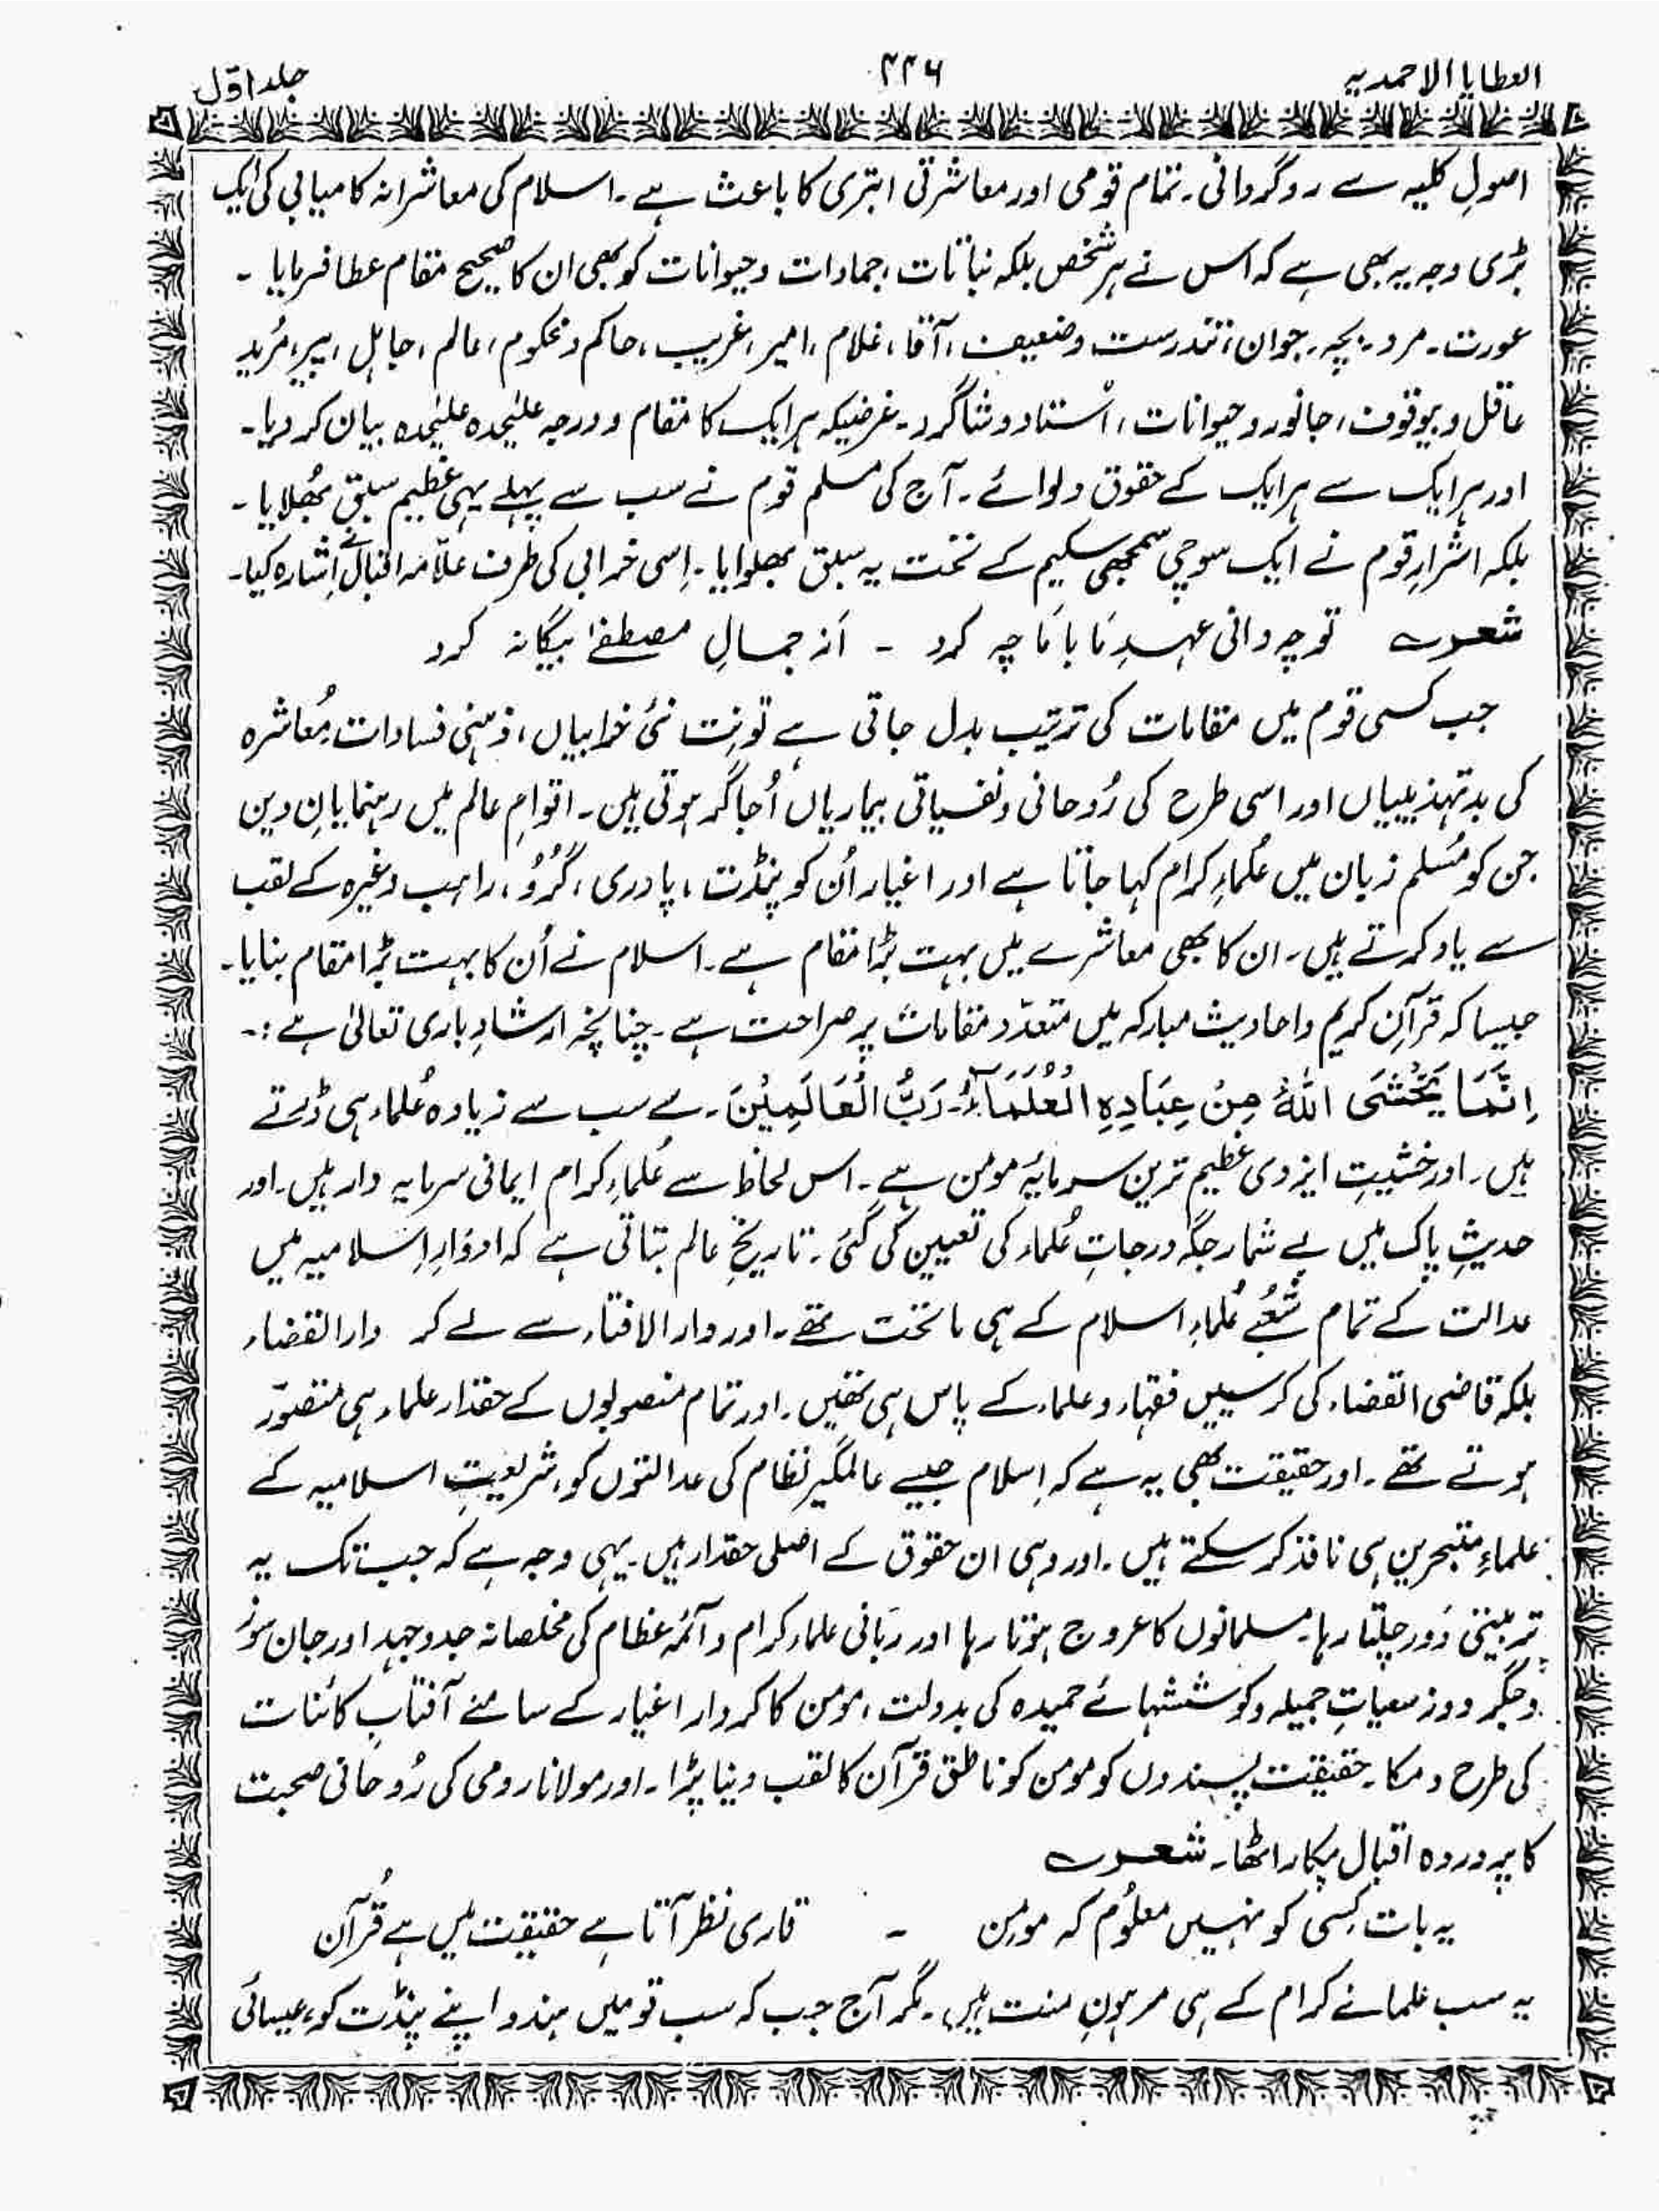 العطایا الاحمدیہ
۴۴۶
جلد اوّل
اصولِ کلیہ سے روگردانی۔ تمام قومی اور معاشرتی ابتری کا باعث ہے۔ اسلام کی معاشرانہ کامیابی کی ایک
بڑی وجہ یہ بھی ہے کہ اس نے ہر شخص بلکہ نباتات، جمادات و حیوانات کو بھی ان کا صحیح مقام عطا فرمایا ۔
عورت۔ مرد۔ بچہ۔ جوان، تندرست و ضعیف، آقا، غلام، امیر، غریب، حاکم و محکوم، عالم، جاہل، پیر، مُرید
عاقل و بیوقوف، جانور و حیوانات، اُستاد و شاگرد۔ غرضیکہ ہر ایک کا مقام و درجہ علیٰحدہ علیٰحدہ بیان کر دیا۔
اور ہر ایک سے ہر ایک کے حقوق دلوائے۔ آج کی مسلم قوم نے سب سے پہلے یہی عظیم سبق بُھلایا ۔
بلکہ اشرارِ قوم نے ایک سوچی سمجھی سکیم کے تحت یہ سبق بھلوایا۔ اِسی خرابی کی طرف علّامہ اقبالؒ نے اِشارہ کیا۔
شعر؎ تو چہ دانی عہدِ مَا با مَا چہ کرد ۔ اَز جمالِ مصطفےٰ بیگانہ کرد
جب کسی قوم میں مقامات کی ترتیب بدل جاتی ہے تو نِت نئی خرابیاں، ذہنی فسادات، مُعاشرہ
کی بدتہذیبیاں اور اسی طرح کی رُوحانی و نفسیاتی بیماریاں اُجاگر ہوتی ہیں۔ اقوامِ عالم میں رہنمایانِ دین
جن کو مُسلم زبان میں عُلماءِ کرام کہا جاتا ہے اور اغیار اُن کو پنڈت، پادری، گُرُو، راہب وغیرہ کے لقب
سے یاد کرتے ہیں۔ ان کا بھی معاشرے میں بہت بڑا مقام ہے۔ اسلام نے اُن کا بہت بڑا مقام بنایا۔
جیسا کہ قرآنِ کریم و احادیث مبارکہ میں متعدّد مقامات پر صراحت ہے۔ چنانچہ ارشادِ باری تعالیٰ ہے :۔
اِنَّمَا یَخْشَی اللّٰہَ مِنْ عِبَادِہِ الْعُلَمَآءُ۔ رَبُّ الْعَالَمِیْنَ۔ سے سب سے زیادہ عُلماء ہی ڈرتے
ہیں۔ اور خشیتِ ایزدی عظیم ترین سرمایۂ مومن ہے۔ اس لحاظ سے عُلماءِ کرام ایمانی سرمایہ دار ہیں۔ اور
حدیثِ پاک میں بے شمار جگہ درجاتِ عُلماء کی تعیین کی گئی۔ تاریخِ عالم بتاتی ہے کہ ادوارِ اِسلامیہ میں
عدالت کے تمام شُعبے عُلماءِ اسلام کے ہی ماتحت تھے۔ اور دار الافتاء سے لے کر دار القضاء
بلکہ قاضی القضاء کی کرسییں فقہاء و علماء کے پاس ہی تھیں۔ اور تمام منصوبوں کے حقدار علماء ہی متصوّر
ہوتے تھے۔ اور حقیقت بھی یہ ہے کہ اِسلام جیسے عالمگیر نظام کی عدالتوں کو، شریعتِ اسلامیہ کے
علماءِ متبحرین ہی نافذ کر سکتے ہیں۔ اور وہی ان حقوق کے اصلی حقدار ہیں۔ یہی وجہ ہے کہ جب تک یہ
تربیتی دَور چلتا رہا۔ مسلمانوں کا عروج ہوتا رہا اور ربّانی علماء کرام و آئمہ عظام کی مخلصانہ جدوجہد اور جان سوز
و جگر دوز سعیاتِ جمیلہ و کوششہائے حمیدہ کی بدولت، مومن کا کردار اغیار کے سامنے آفتابِ کائنات
کی طرح دمکا۔ حقیقت پسندوں کو مومن کو ناطق قرآن کا لقب دینا پڑا۔ اور مولانا رومی کی رُوحانی صحبت
کا پروردہ اقبال پکار اٹھا۔ شعر؎
یہ بات کِسی کو نہیں معلُوم کہ مومِن ۔ قاری نظر آتا ہے حقیقت میں ہے قُرآن
یہ سب علمائے کرام کے ہی مرہونِ منت ہیں۔ مگر آج جب کہ سب قومیں ہندو اپنے پنڈت کو، عیسائی